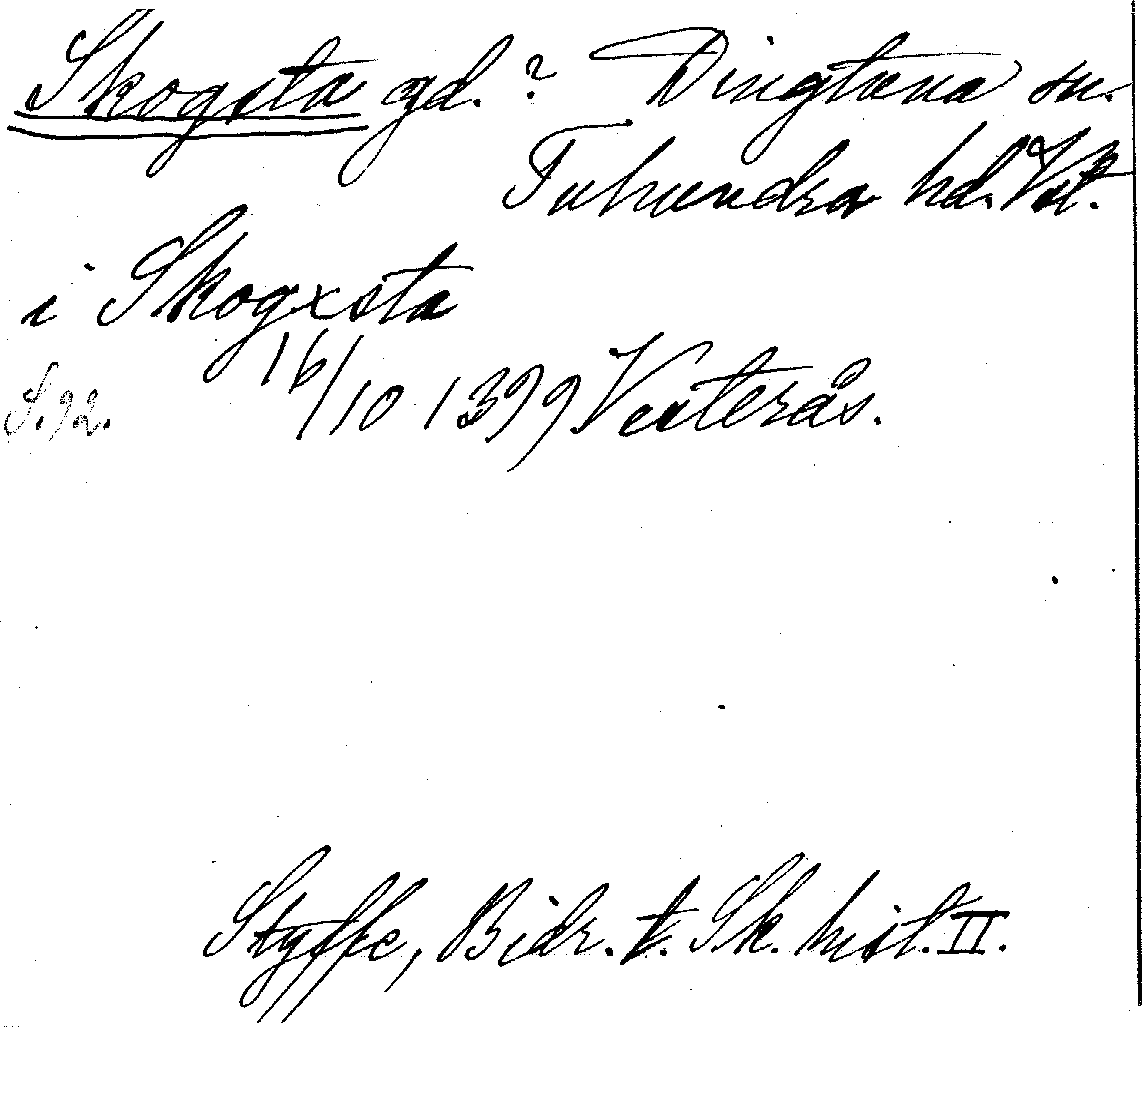 Skogsta gd. ? Dingtuna sn.
Tuhundra hd. Vstm.
i Skogxsta
16/10 1399 Vesterås.
S. 92.
Styffe, Bidr. t. Sk. hist. II.